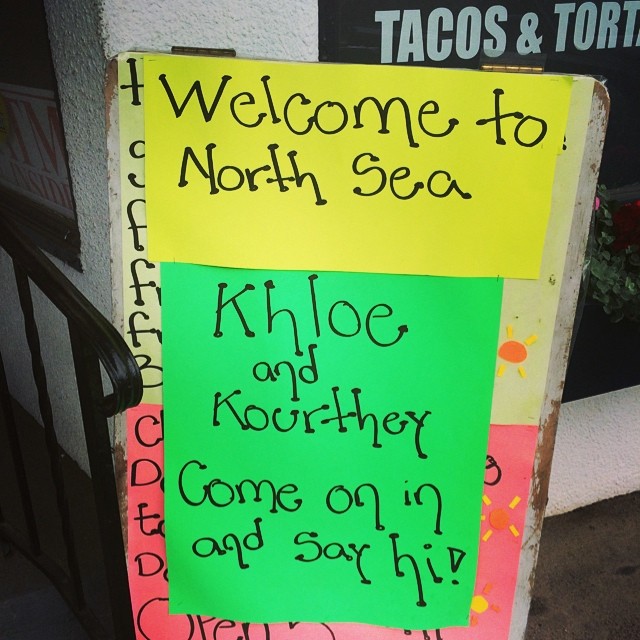 TACOS &
Welcome to
North Sea
Khloe
and
Kourthey
Come on in
and say hi!